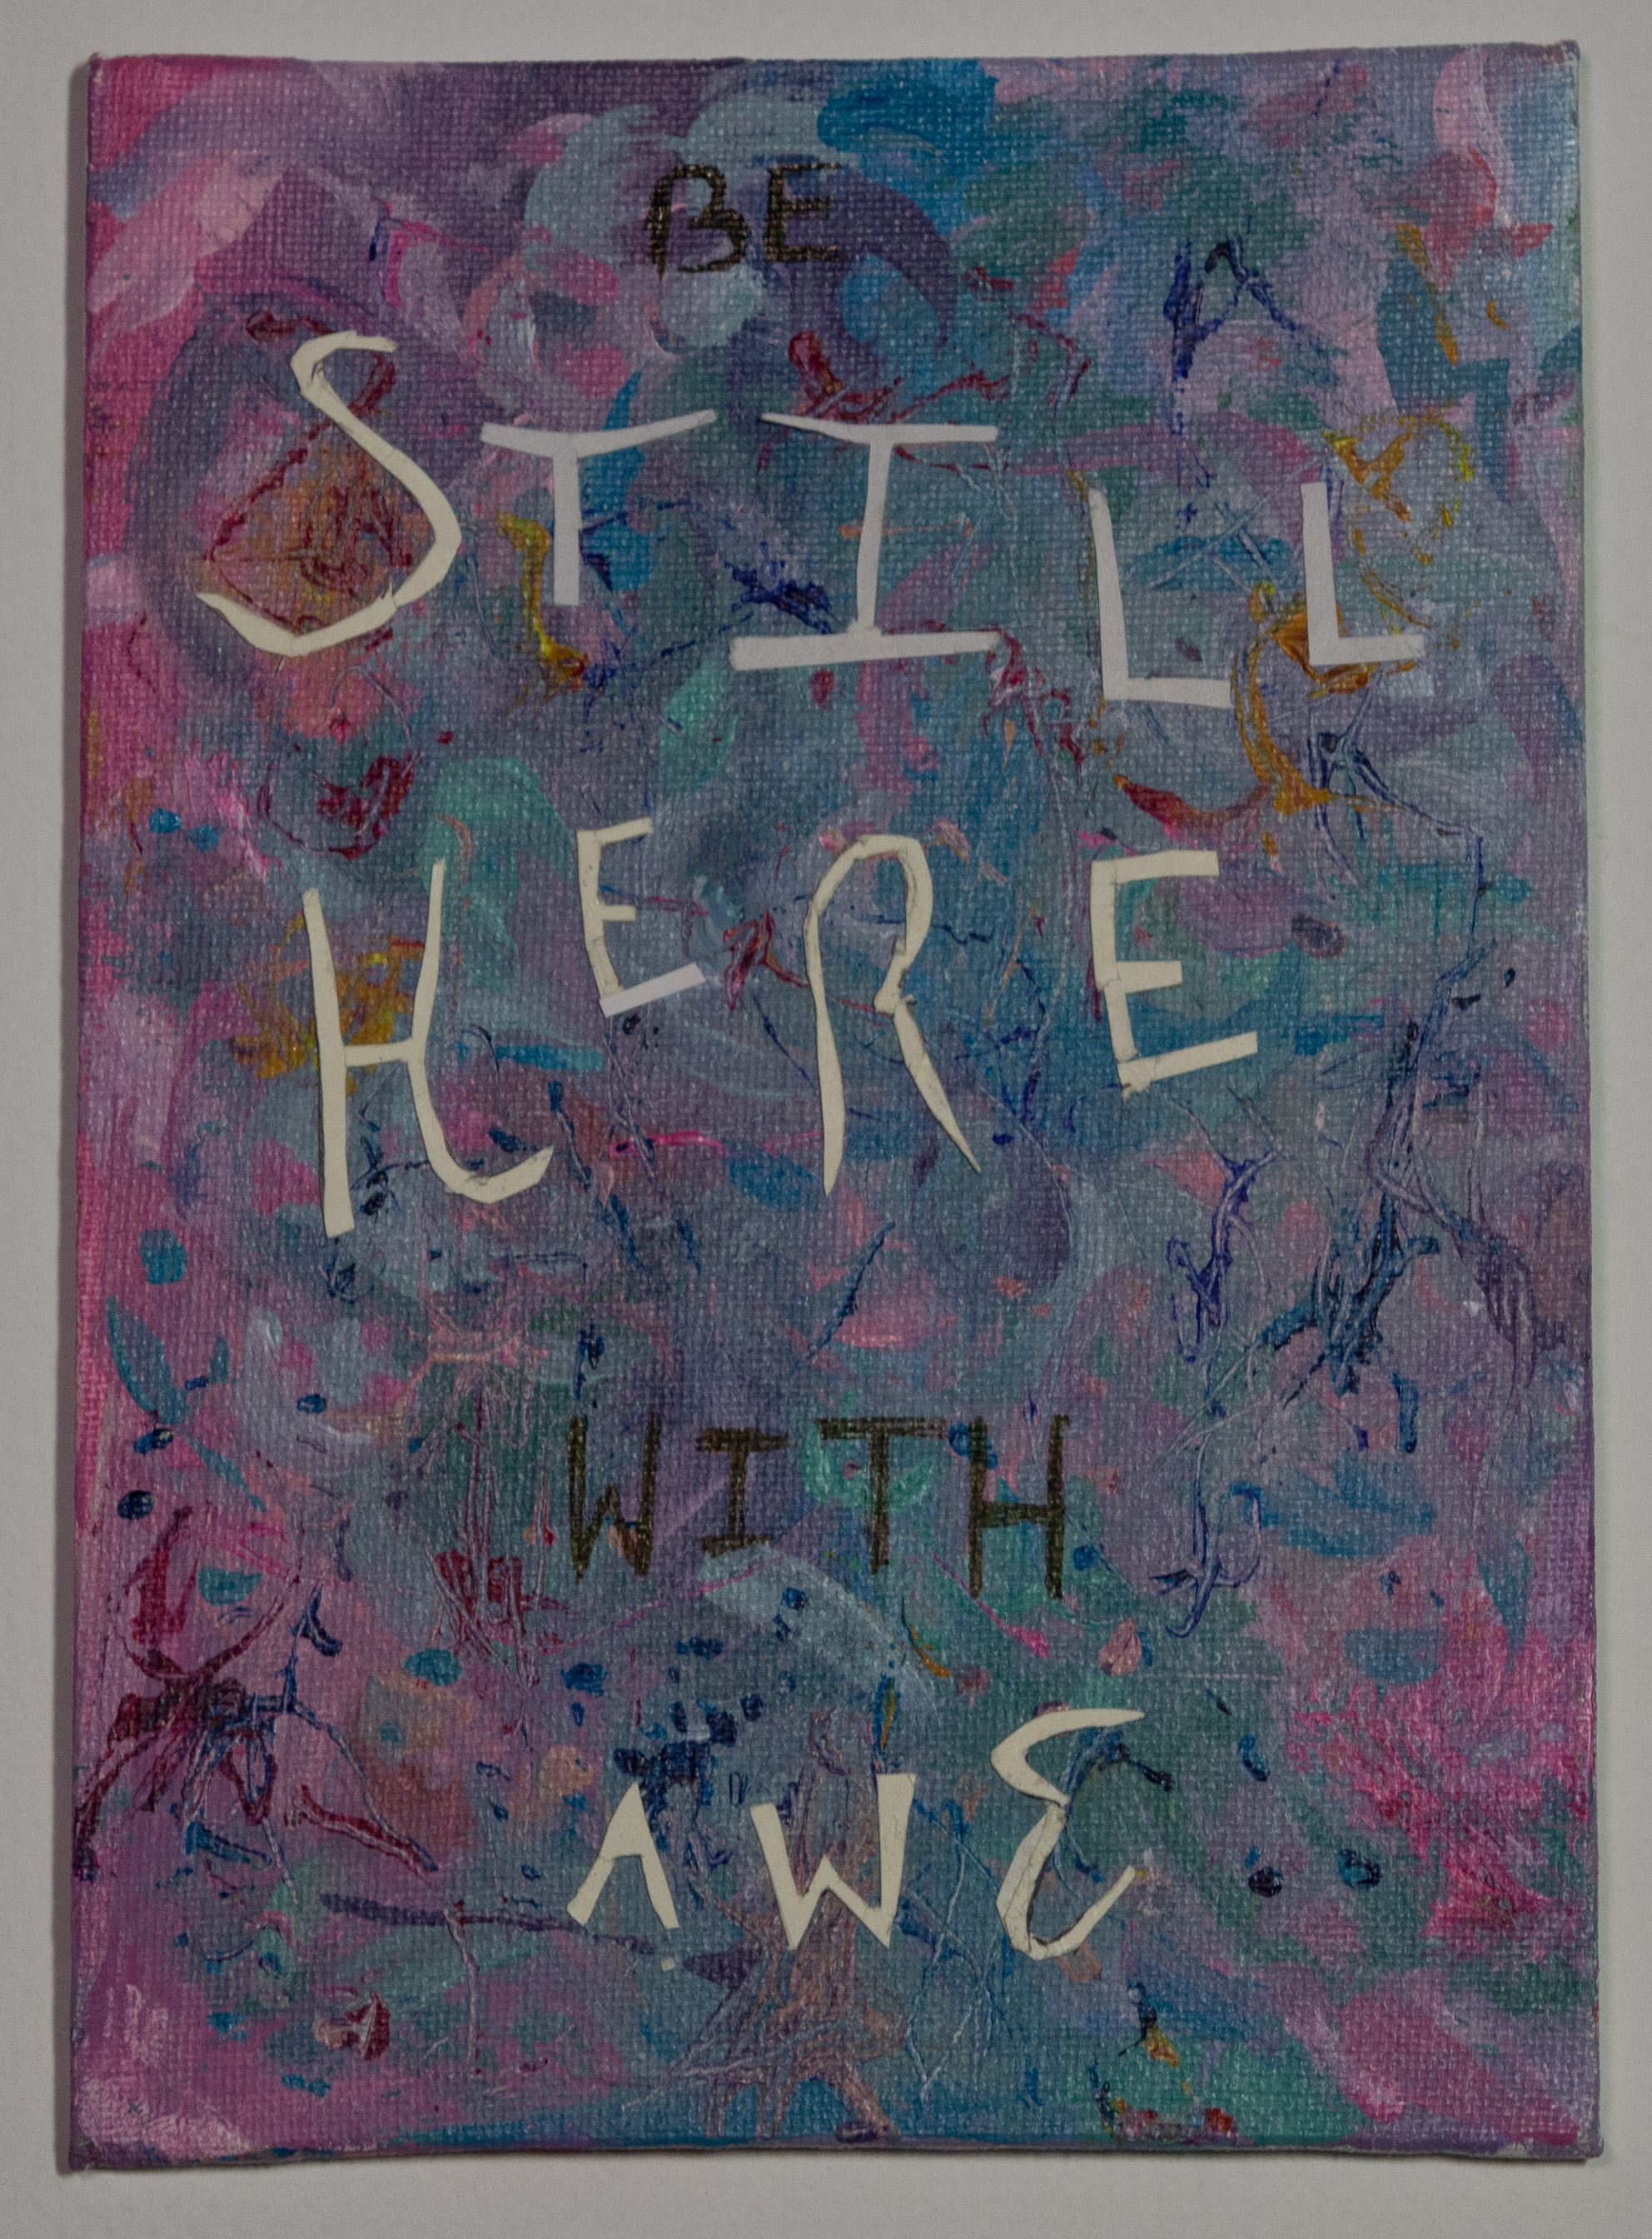 BE
STILL
HERE
WITH
AWE